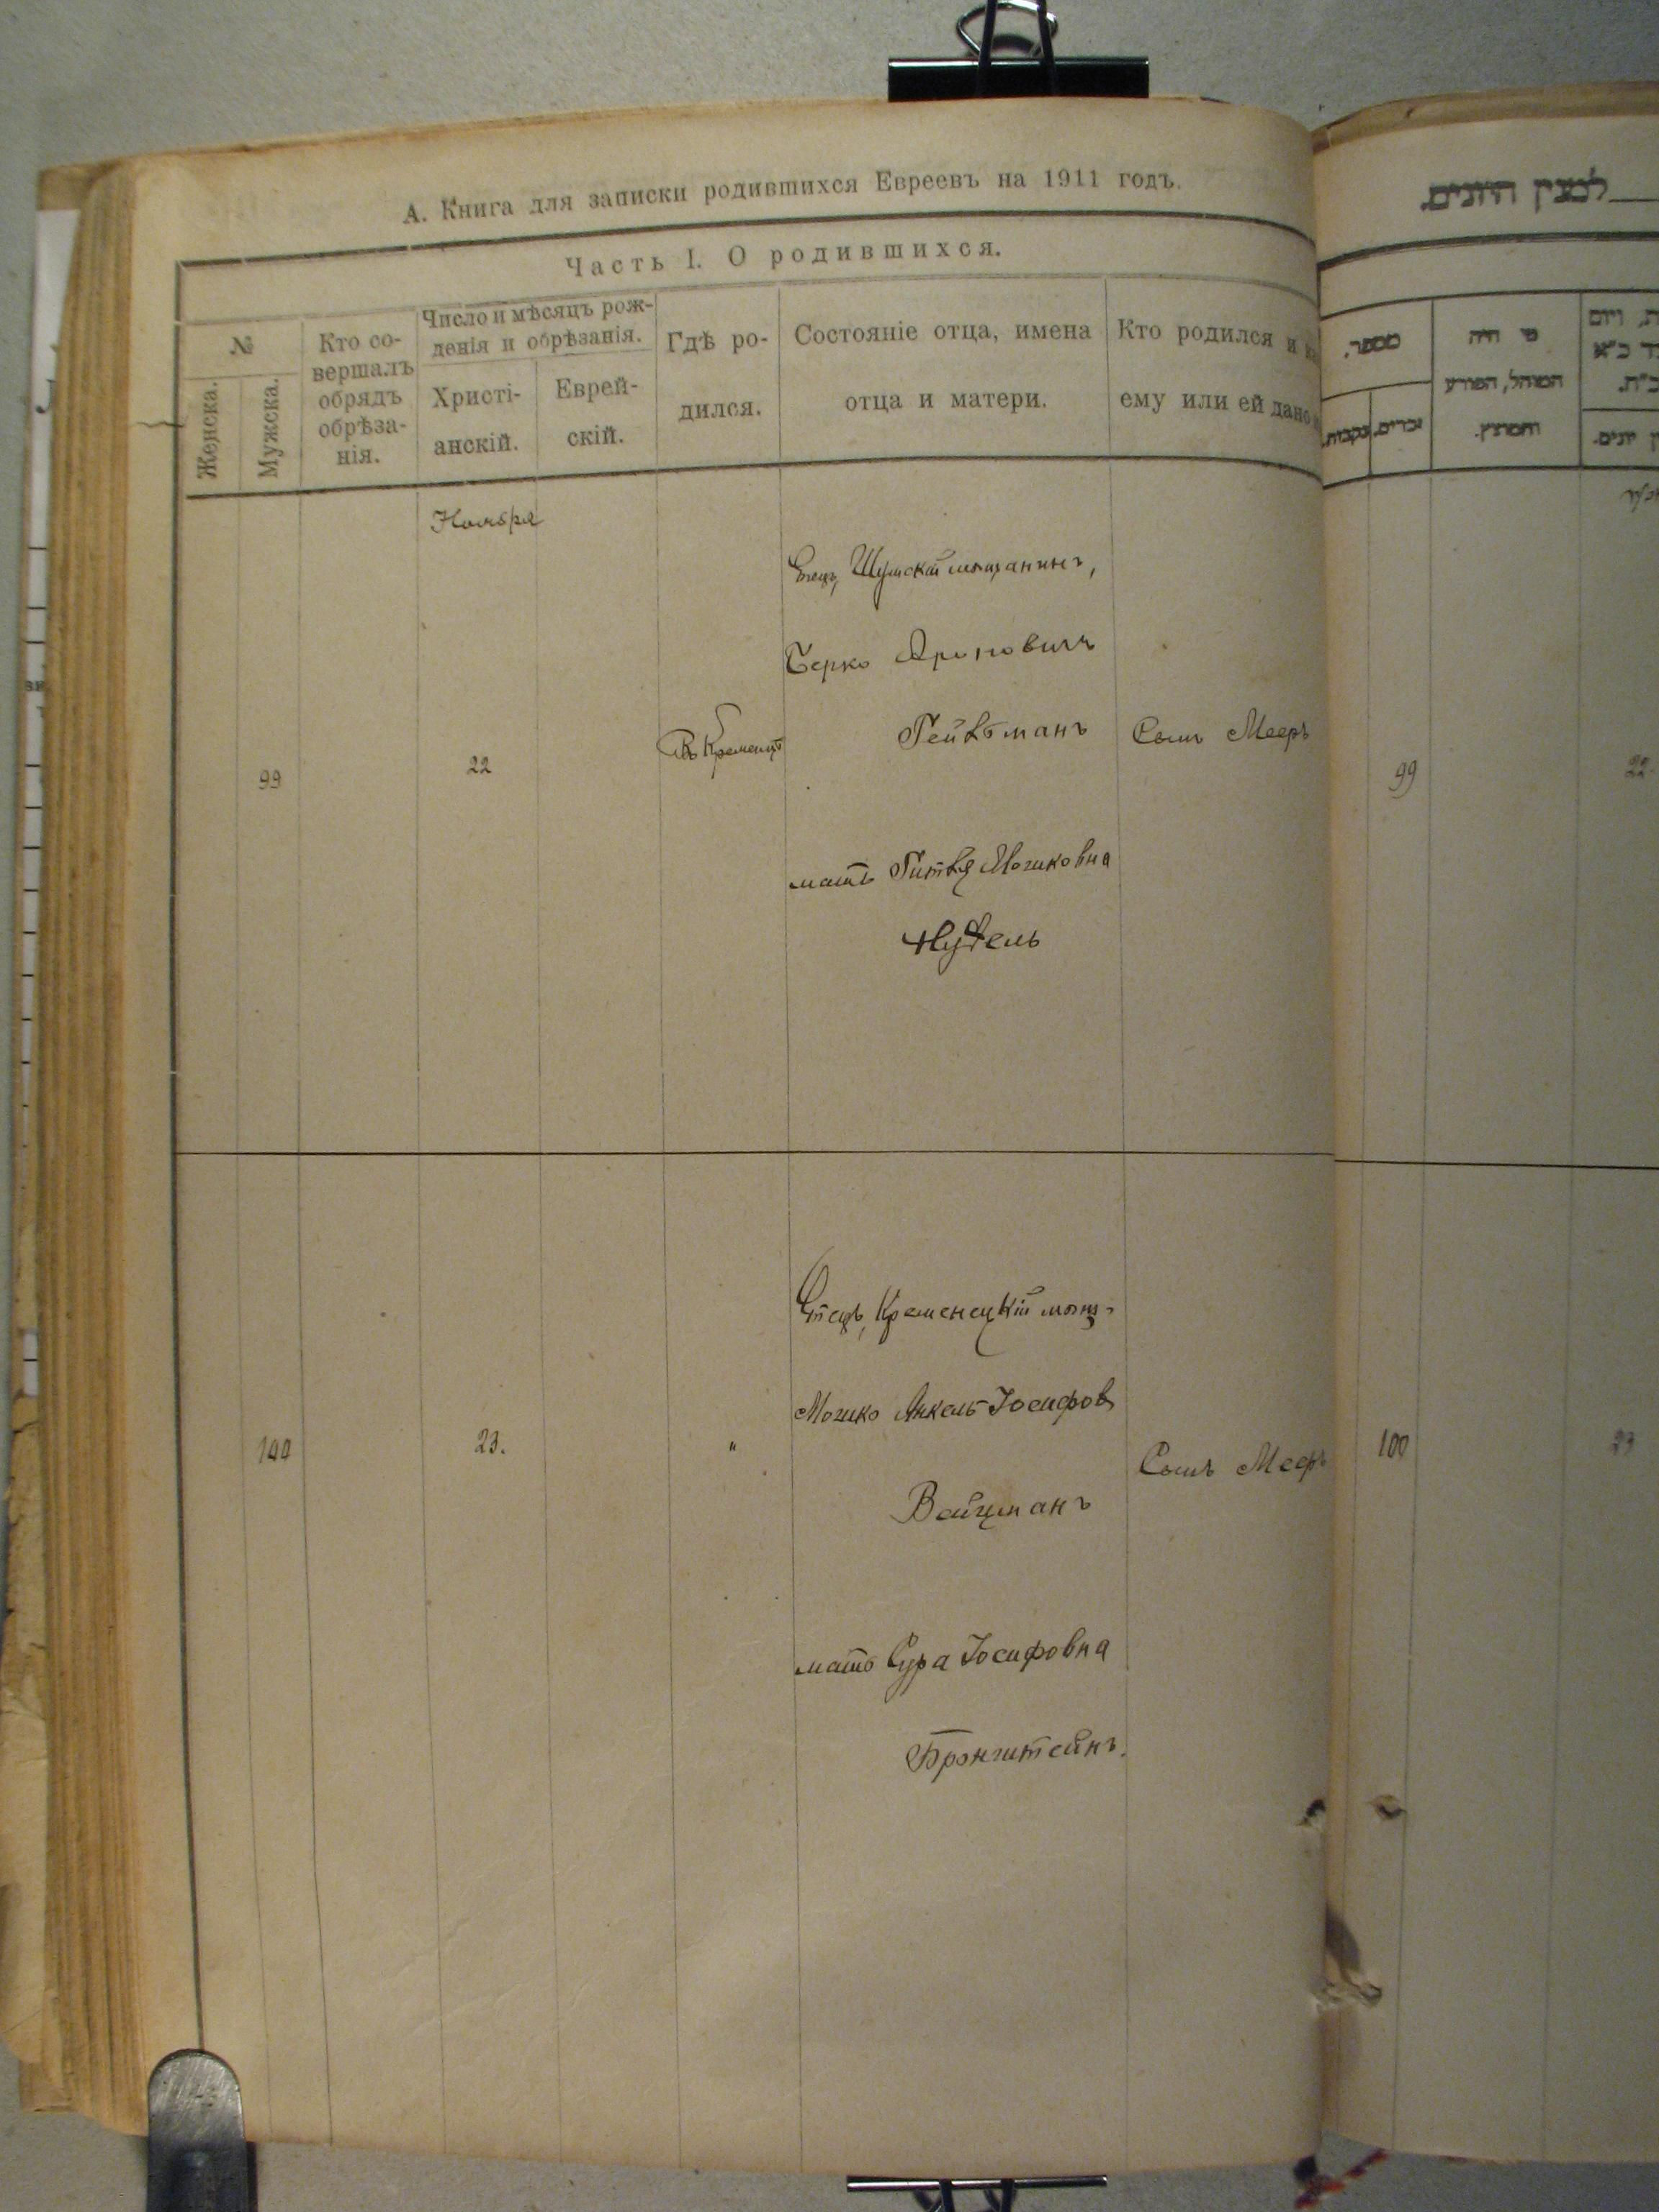 А. Книга для записки родившихся Евреевъ на 1911 годъ.
Часть I. О родившихся.
№
Женска.
Мужска.
Кто со-
вершалъ
обрядъ
обрѣза-
нія.
Число и мѣсяцъ рож-
денія и обрѣзанія.
Христі-
анскій.
Еврей-
скій.
Гдѣ ро-
дился.
Состояніе отца, имена
отца и матери.
Кто родился и
ему или ей дано
Ноября
99
22
Въ Кременцѣ
Отецъ, Шумскій мѣщанинъ,
Берко Ароновичъ
Гейвманъ
мать Гитля Мошковна
Нудель
Сынъ Мееръ
100
23.
"
Отецъ, Кременецкій мѣщ.
Мошко Янкель Іосифов
Вайцманъ
мать Сура Іосифовна
Бронштейнъ.
Сынъ Мееръ
למנין היונים.
מספר.
נקבות.
זכרים.
מי היה
המוהל, הפורע
והמוצץ.
99
22
100
23